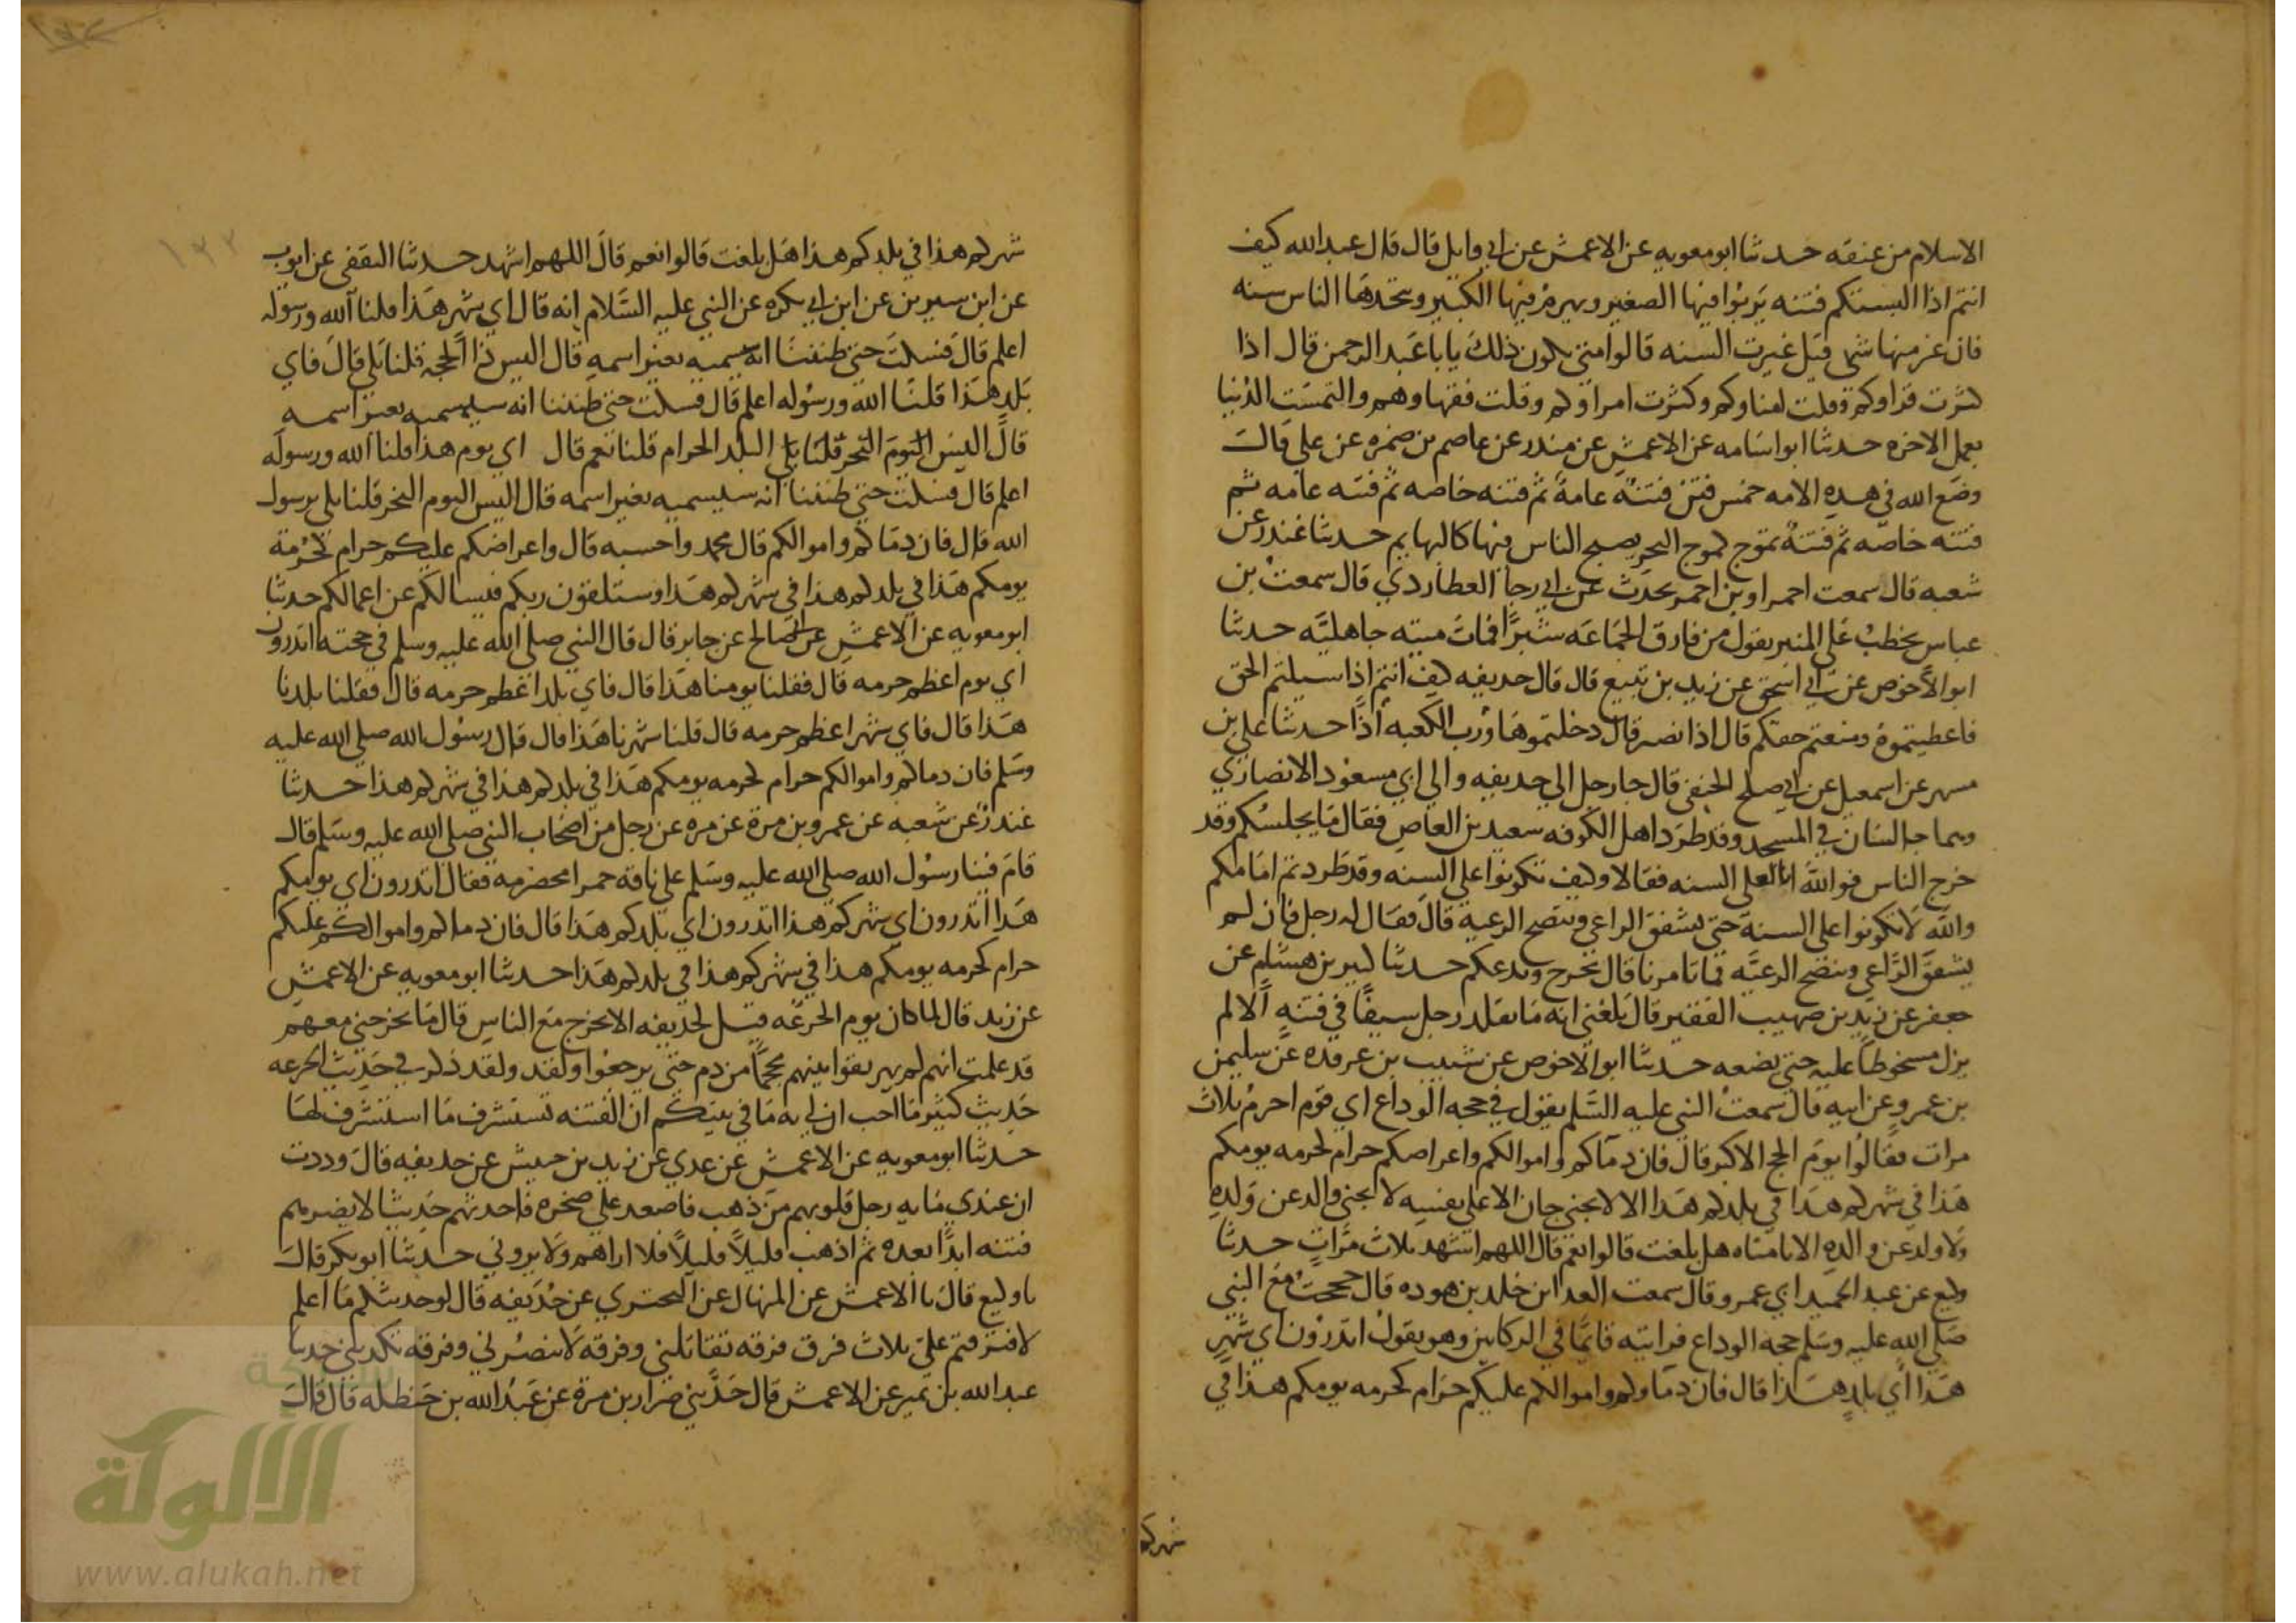 الاسلام من عنقه حدثنا ابو معويه عن الاعمش عن ابي وايل قال قال عبد الله كيف
انتم اذا البستكم فتنه يربوا فيها الصغير ويهرم فيها الكبير ويتخذها الناس سنه
فان غير منها شي قيل غيرت السنه قالوا متى يكون ذلك يا با عبد الرحمن قال اذا
كثرت قراوكم وقلت امناوكم وكثرت امراوكم وقلت فقهاوهم والتمست الدنيا
بعمل الاخره حدثنا ابو اسامه عن الاعمش عن منذر عن عاصم بن ضمره عن علي قال
وضع الله في هذه الامه خمس فتن فتنة عامة ثم فتنه خاصه ثم فتنه عامه ثم
فتنه خاصه ثم فتنة تموج كموج البحر يصبح الناس فيها كالبهايم حدثنا غندر عن
شعبه قال سمعت احمرا وبن احمر يحدث عن ابي رجا العطاردي قال سمعت بن
عباس يخطب على المنبر يقول من فارق الجماعه شبرا فمات ميته جاهليه حدثنا
ابو الاحوص عن ابي اسحق عن زيد بن تبيع قال قال حذيفه كيف انتم اذا سيلتم الحق
فاعطيتموه ومنعتم حقكم قال اذا نصبر قال دخلتموها ورب الكعبه اذا حدثنا علي بن
مسهر عن اسمعيل عن ابي صلح الحنفي قال جا رجل الى حذيفه والى ابي مسعود الانصاري
وهما جالسان في المسجد وقد طرد اهل الكوفه سعيد بن العاص فقال ما يجلسكم وقد
خرج الناس فوالله انا لعلى السنه فقالا وكيف تكونوا على السنه وقد طردتم امامكم
والله لا تكونوا على السنه حتى يشفق الراعي وينصح الرعيه قال فقال له رجل فان لم
يشفق الراعي وينصح الرعيه فما تامرنا قال نخرج وندعكم حدثنا كثير بن هشام عن
جعفر عن زيد بن صهيب الفقير قال بلغني انه ما تقلد رجل سيفا في فتنه الا لم
يزل مسخوطا عليه حتى يضعه حدثنا ابو الاحوص عن شبيب بن عرقده عن سليمن
بن عمرو عن ابيه قال سمعت النبي عليه السلم يقول في حجه الوداع اي قوم احرم ثلاث
مرات فقالوا يوم الحج الاكبر قال فان دماكم واموالكم واعراضكم حرام لحرمه يومكم
هذا في شهركم هذا في بلدكم هذا الا لا يجني جان الا على نفسه لا يجني والد عن ولده
ولا ولد عن والده الا يا متاه هل بلغت قالوا نعم قال اللهم اشهد ثلاث مرات حدثنا
وكيع عن عبد المجيد ابي عمرو قال سمعت العدا بن خلد بن هوده قال حججت مع النبي
صلى الله عليه وسلم حجه الوداع فرايته قايما في الركابين وهو يقول اتدرون اي شهر
هذا اي بلد هذا قال فان دماوكم واموالكم عليكم حرام كحرمه يومكم هذا في
شهركم
شهركم هذا في بلدكم هذا هل بلغت قالوا نعم قال اللهم اشهد حدثنا الثقفي عن ايوب
عن ابن سيرين عن ابن ابي بكره عن النبي عليه السلام انه قال اي شهر هذا قلنا الله ورسوله
اعلم قال فسكت حتى ظننا انه يسميه بغير اسمه قال اليس ذا الحجه قلنا بلى قال فاي
بلد هذا قلنا الله ورسوله اعلم قال فسكت حتى ظننا انه سيسميه بغير اسمه
قال اليس اليوم النحر قلنا بلى البلد الحرام قلنا نعم قال اي يوم هذا قلنا الله ورسوله
اعلم قال فسكت حتى ظننا انه سيسميه بغير اسمه قال اليس اليوم النحر قلنا بلى يرسول
الله قال فان دماكم واموالكم قال محمد واحسبه قال واعراضكم عليكم حرام لحرمة
يومكم هذا في بلدكم هذا في شهركم هذا وستلقون ربكم فيسالكم عن اعمالكم حدثنا
ابو معويه عن الاعمش عن ابي صالح عن جابر قال قال النبي صلى الله عليه وسلم في حجته اتدرون
اي يوم اعظم حرمه قال فقلنا يومنا هذا قال فاي بلد اعظم حرمه قال فقلنا بلدنا
هذا قال فاي شهر اعظم حرمه قال قلنا شهرنا هذا قال قال رسول الله صلى الله عليه
وسلم فان دماكم واموالكم حرام لحرمه يومكم هذا في بلدكم هذا في شهركم هذا حدثنا
غندر عن شعبه عن عمرو بن مرة عن مره عن رجل من اصحاب النبي صلى الله عليه وسلم قال
قام فينا رسول الله صلى الله عليه وسلم على ناقه حمرا مخضرمه فقال اتدرون اي يومكم
هذا اتدرون اي شهركم هذا اتدرون اي بلدكم هذا قال فان دماكم واموالكم عليكم
حرام كحرمه يومكم هذا في شهركم هذا في بلدكم هذا حدثنا ابو معويه عن الاعمش
عن زيد قال لما كان يوم الجرعه قيل لحذيفه الا تخرج مع الناس قال ما يخرجني معهم
قد علمت انهم لم يهريقوا بينهم محجما من دم حتى يرجعوا ولقد ولقد ذكر في حديث الجرعه
حديث كثير ما احب ان لي به ما في بيتكم ان الفتنه تستشرف ما استشرف لها
حدثنا ابو معويه عن الاعمش عن عدي عن زيد بن حبيش عن حذيفه قال وددت
ان عندي مايه رجل قلوبهم من ذهب فاصعد على صخره فاحدثهم حديثا لا يضرهم
فتنه ابدا بعده ثم اذهب قليلا قليلا فلا اراهم ولا يروني حدثنا ابو بكر قال
نا وكيع قال نا الاعمش عن المنهال عن البحتري عن حذيفه قال لو حدثتكم ما اعلم
لافترقتم علي ثلاث فرق فرقه تقاتلني وفرقه لا تنصرني وفرقه تكذبني حدثنا
عبد الله بن نمير عن الاعمش قال حدثني ضرار بن مرة عن عبد الله بن حنظله قال قال
١٣٢
شبكة
الألوكة
www.alukah.net